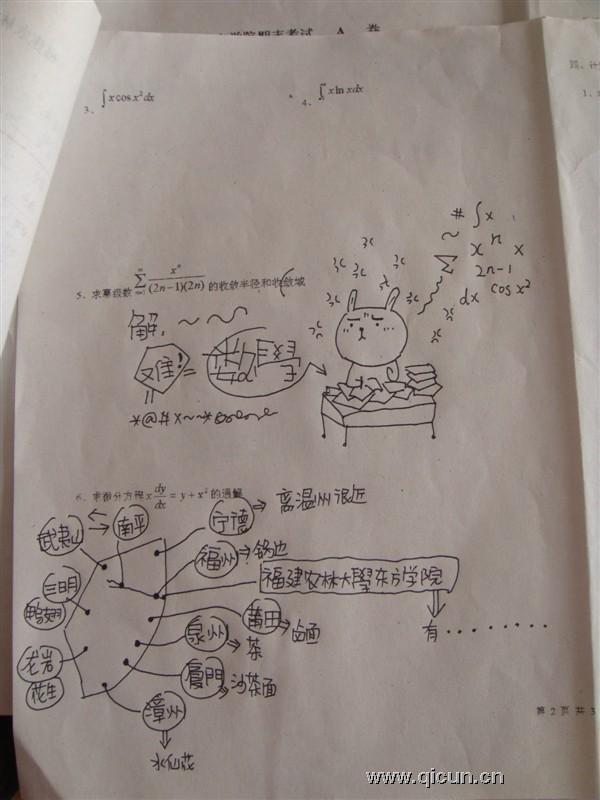 学院期末考试 A 卷
3、∫x cos x² dx
4、
x ln x dx
5、求幂级数 ∑ xⁿ/((2n−1)(2n)) 的收敛半径和收敛域
解:~~~
难! = 數學
*@#x~~*
# ∫ x
~ xⁿ x
∑ 2n-1
dx cos x²
6、求微分方程 x dy/dx = y + x² 的通解
武夷山
南平
宁德 ⇒ 离温州很近
福州 ⇒ 锅边
三明
鸭翅
福建农林大學东方学院
莆田 ⇒ 卤面
有········
泉州 ⇒ 茶
龙岩
花生
廈門 ⇒ 沙茶面
漳州
水仙花
第 2 页 共 3
www.qicun.cn